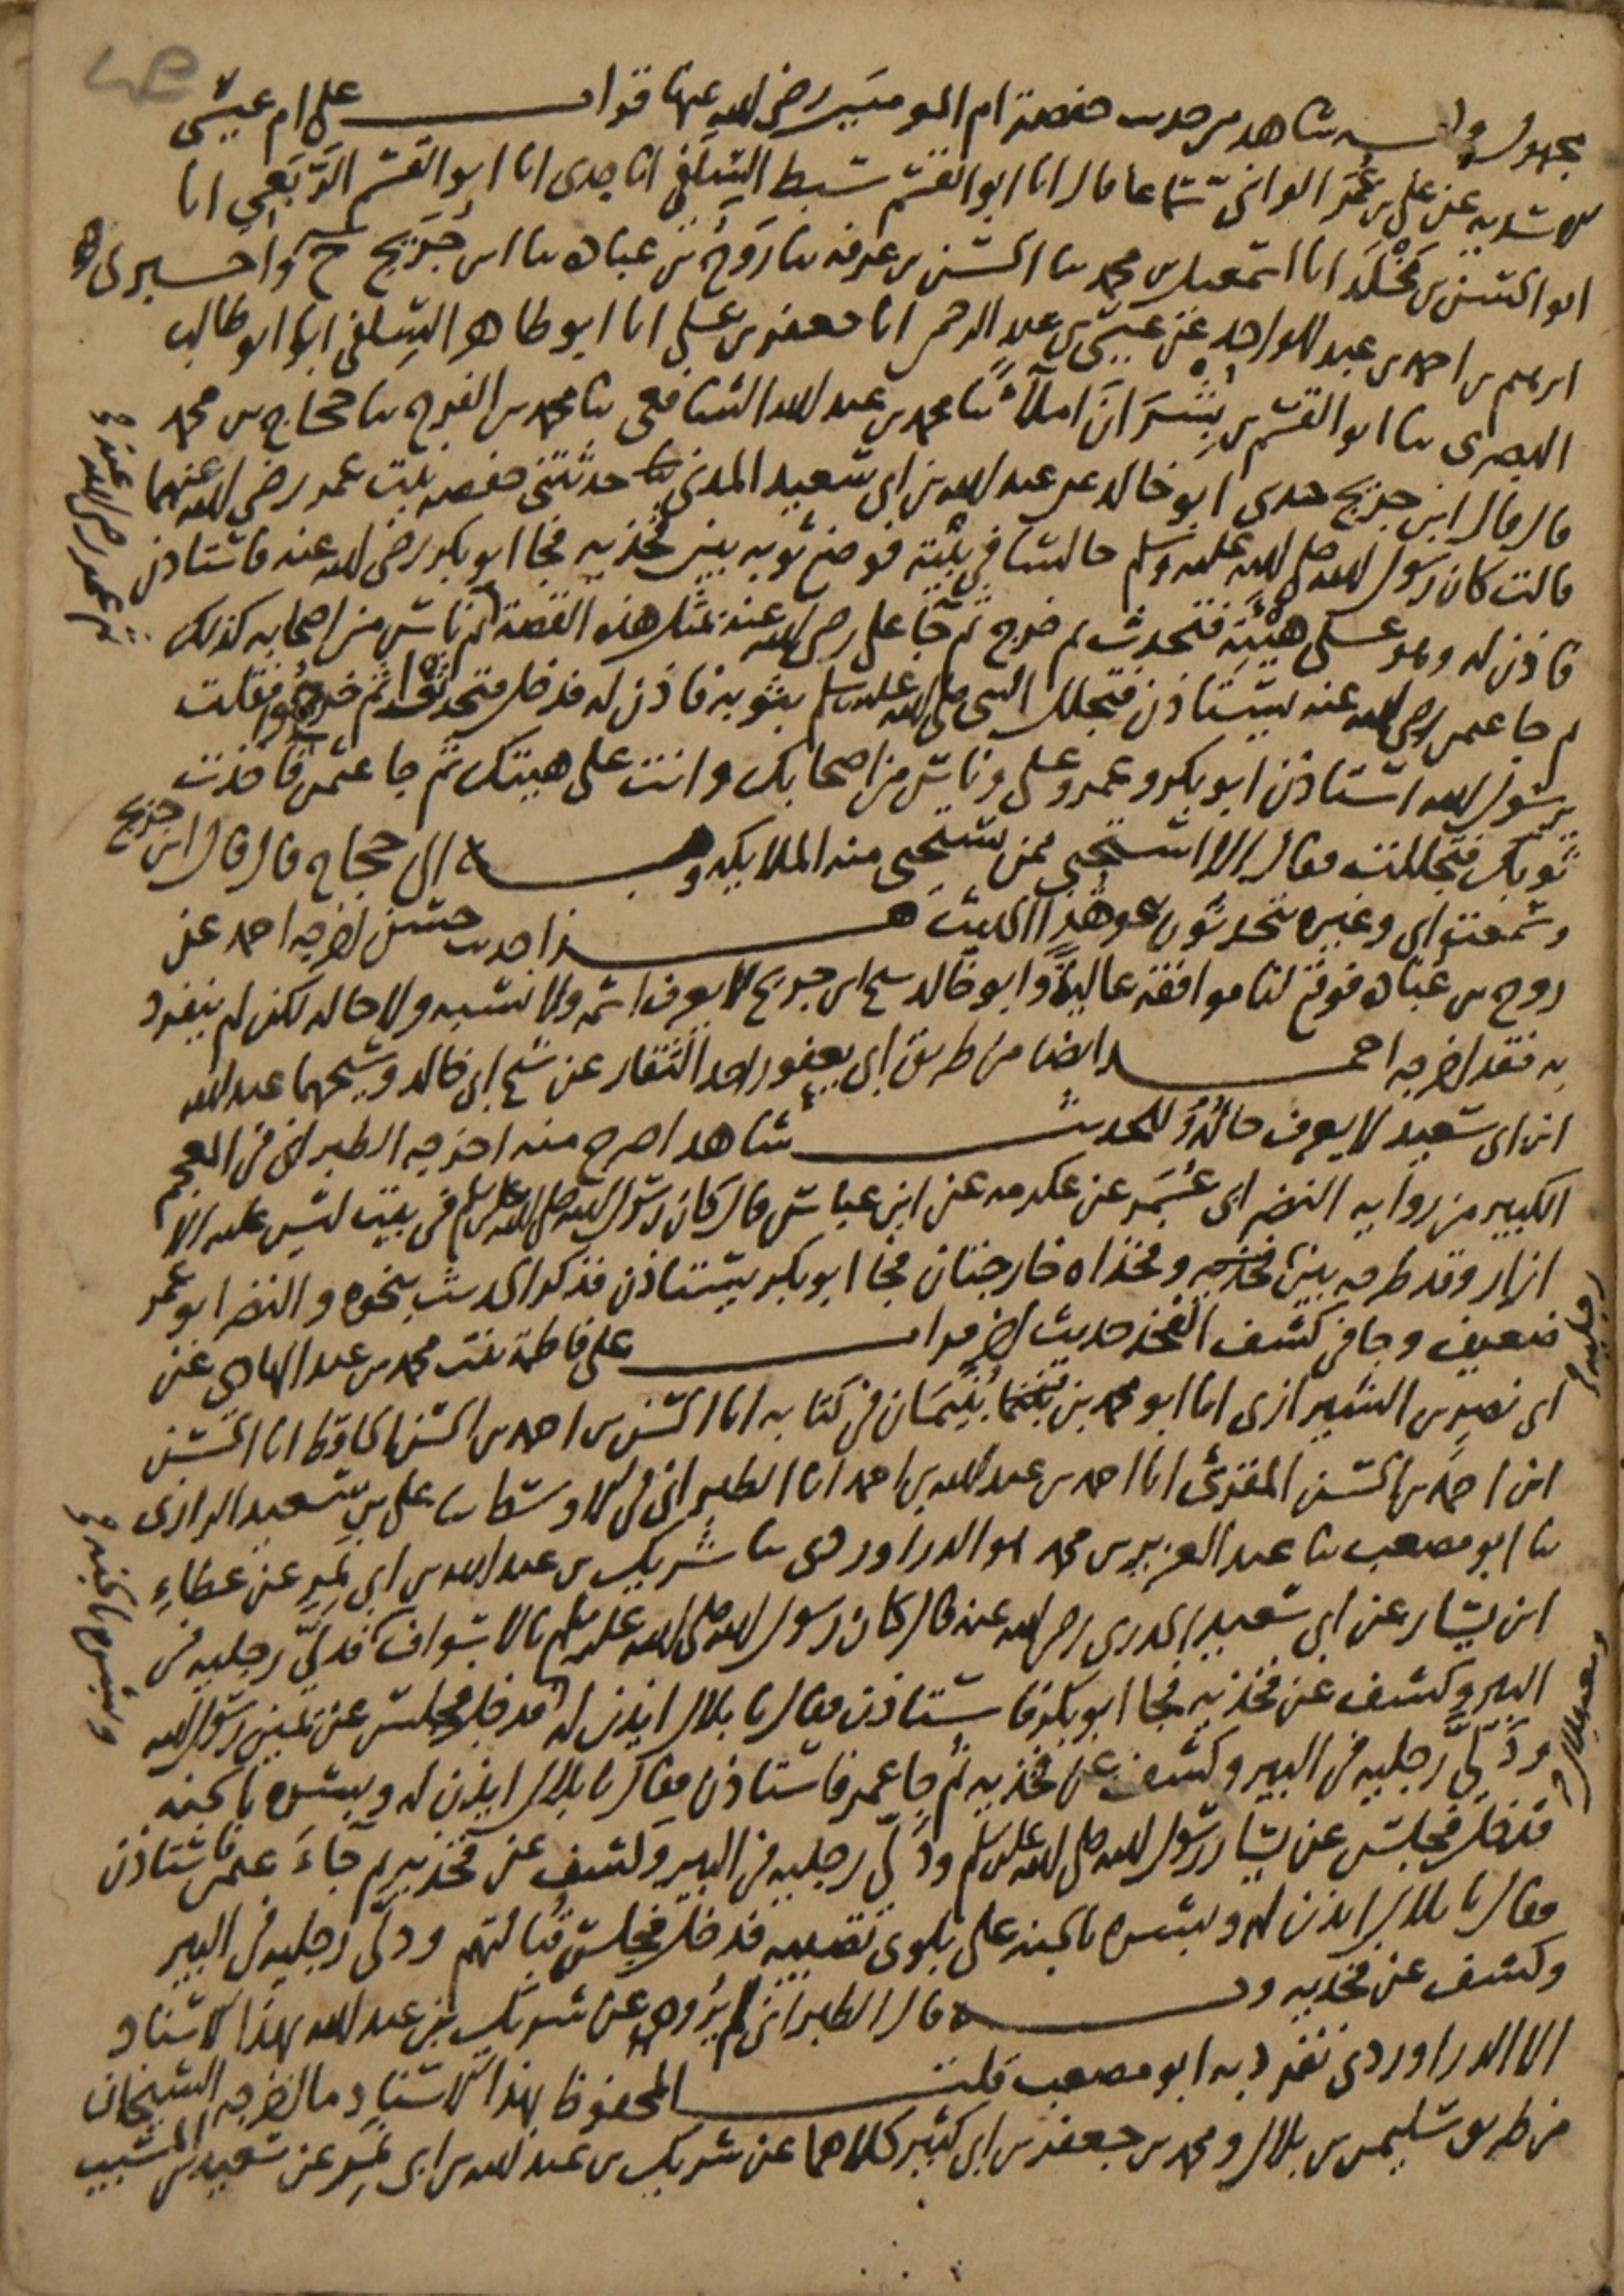 مجهول وله شاهد من حديث حفصة ام المومنين رضي الله عنها قرات على ام عيسى
الاسديه عن علي بن عمر الواني سماعا قال انا ابو القسم سبط السلفي انا جدى انا ابو القسم الربعي انا
ابو الحسن بن مخلد انا اسمعيل بن محمد ثنا الحسن بن عرفه ثنا روح بن عباده ثنا ابن جريج ح واخبرني
ابرهيم بن احمد بن عبد الواحد عن عيسى بن عبد الرحمن انا جعفر بن علي انا ابو طاهر السلفي انا ابو طالب
البصرى ثنا ابو القسم بن بشران املاء ثنا محمد بن عبد الله الشافعي ثنا محمد بن الفرج ثنا حجاج بن محمد
قال قال ابن جريج حدثني ابو خالد عن عبد الله بن ابي سعيد المدني حدثتني حفصه بنت عمر رضي الله عنهما
قالت كان رسول الله صلى الله عليه وسلم جالسا في بيته فوضع ثوبه بين فخذيه فجا ابو بكر رضي الله عنه فاستاذن
فاذن له وهو على هيئته فتحدث ثم خرج ثم جا علي رضي الله عنه بمثل هذه القصة ثم ناس من اصحابه كذلك
ثم جا عثمن رضي الله عنه يستاذن فتجلل النبي صلى الله عليه وسلم بثوبه فاذن له فدخل فتحدثوا ثم خرجوا فقلت
يرسول الله استاذن ابو بكر وعمر وعلي وناس من اصحابك وانت على هيئتك ثم جا عثمن فاخذت
ثوبك فتجللت فقال الا استحيي ممن تستحيى منه الملايكه وبه الى حجاج قال قال ابن جريج
وسمعت ابي وغيره يتحدثون نحو هذا الحديث هذا حديث حسن اخرجه احمد عن
روح بن عباده فوقع لنا موافقة عالية وابو خالد شيخ ابن جريج لا يعرف اسمه ولا نسبه ولا حاله لكن لم ينفرد
به فقد اخرجه احمد ايضا من طريق ابي يعفور احد الثقات عن شيخ ابي خالد وشيخهما عبد الله
ابن ابي سعيد لا يعرف حاله وللحديث شاهد اصرح منه اخرجه الطبراني في المعجم
الكبير من روايه النضر ابي عمر عن عكرمه عن ابن عباس قال كان رسول الله صلى الله عليه وسلم في بيت ليس عليه الا
ازار وقد طرحه بين فخذيه وفخذاه خارجتان فجا ابو بكر يستاذن فذكر الحديث بنحوه والنضر ابو عمر
ضعيف وجا في كشف الفخذ حديث اخر قرات على فاطمة بنت محمد بن عبد الهادي عن
ابي نصر بن الشيرازى انا ابو محمد بن بنيمان في كتابه انا الحسن بن احمد بن الحسن الحافظ انا الحسن
ابن احمد بن الحسن المقرئ انا احمد بن عبد الله بن احمد انا الطبراني في الاوسط ثنا علي بن سعيد الرازى
ثنا ابو مصعب ثنا عبد العزيز بن محمد هو الدراوردى ثنا شريك بن عبد الله بن ابي نمر عن عطاء
ابن يسار عن ابي سعيد الخدرى رضي الله عنه قال كان رسول الله صلى الله عليه وسلم بالاسواف قد دلى رجليه في
البير وكشف عن فخذيه فجا ابو بكر فاستاذن فقال يا بلال ايذن له فدخل فجلس عن يمين رسول الله
ودلى رجليه في البير وكشف عن فخذيه ثم جا عمر فاستاذن فقال يا بلال ايذن له وبشره بالجنه
فدخل فجلس عن يسار رسول الله صلى الله عليه وسلم ودلى رجليه في البير وكشف عن فخذيه ثم جاء عثمن فاستاذن
فقال يا بلال ايذن له وبشره بالجنه على بلوى تصيبه فدخل فجلس قبالتهم ودلى رجليه في البير
وكشف عن فخذيه وبه قال الطبراني لم يروه عن شريك بن عبد الله بهذا الاسناد
الا الدراوردى تفرد به ابو مصعب قلت المحفوظ بهذا الاسناد ما اخرجه الشيخان
من طريق سليمن بن بلال ومحمد بن جعفر بن ابي كثير كلاهما عن شريك بن عبد الله بن ابي نمر عن سعيد بن المسيب
ثم عمر رضي الله عنه
وبشره بالجنه